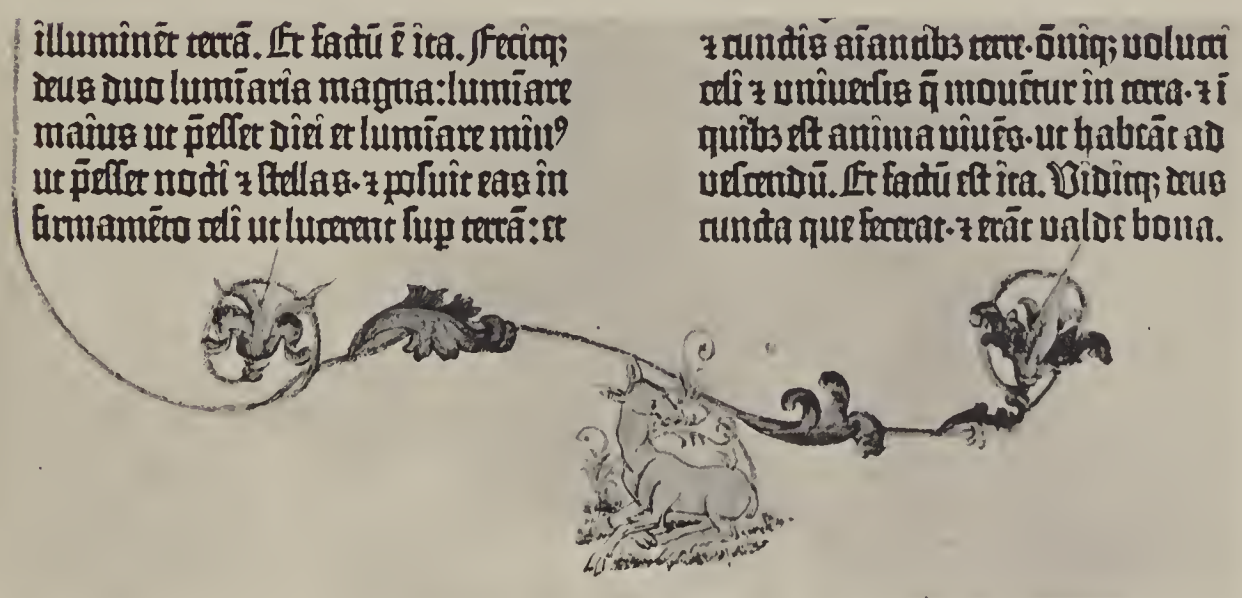 illuminēt terrā. Et factū ē ita. Fecitq;
deus duo lumīaria magna: lumīare
maius ut p̄esset diei et lumīare minꝰ
ut p̄esset nocti ⁊ stellas· ⁊ posuit eas in
firmamēto celi ut lucerent sup terrā: et
⁊ cunctis aīantibꝫ terre· ōniq; volucri
celi ⁊ universis q̄ movētur in terra· ⁊ ī
quibꝫ est anima vivēs· ut habeāt ad
vescendū. Et factū est ita. Viditq; deus
cuncta que fecerat· ⁊ erāt valde bona.